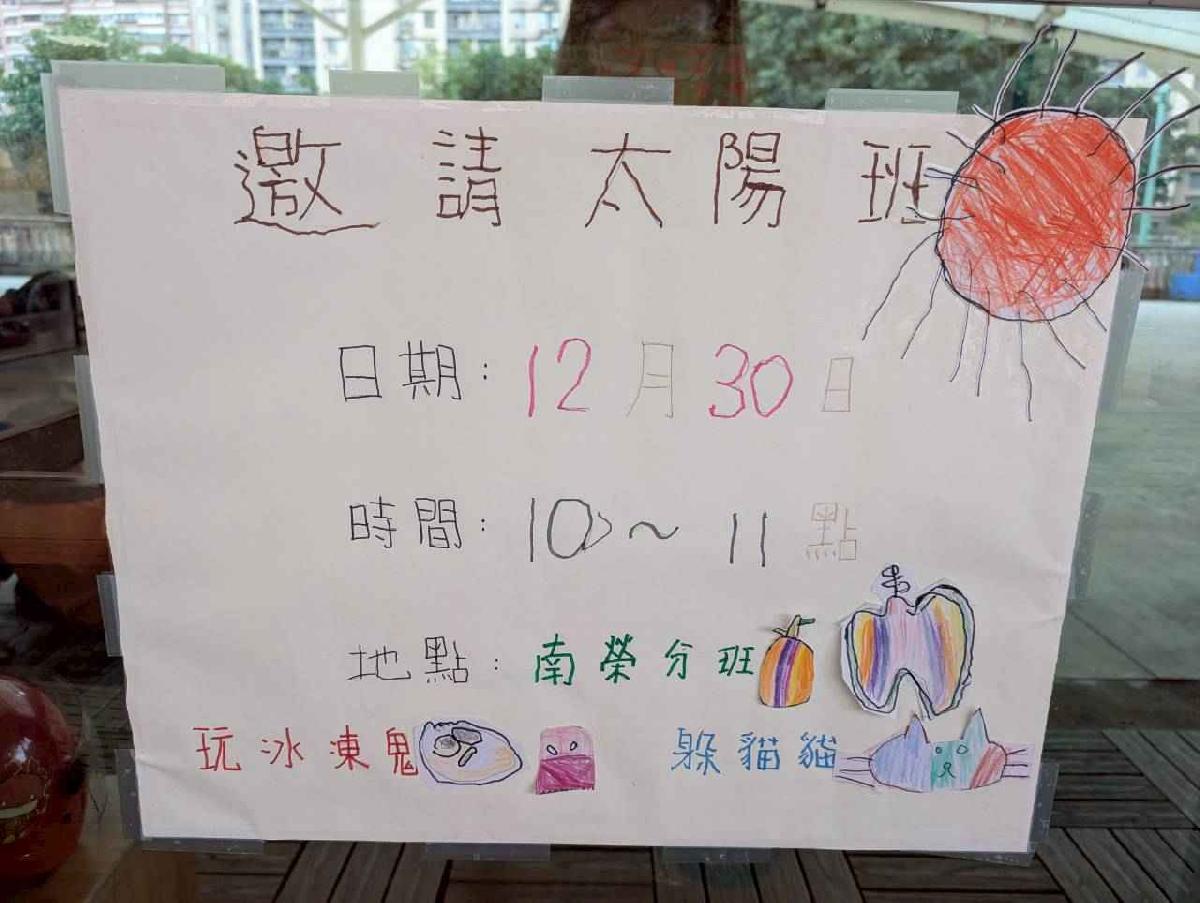 邀請太陽班
日期：12月30日
時間：10～11點
地點：南榮分班
玩冰凍鬼 躲貓貓